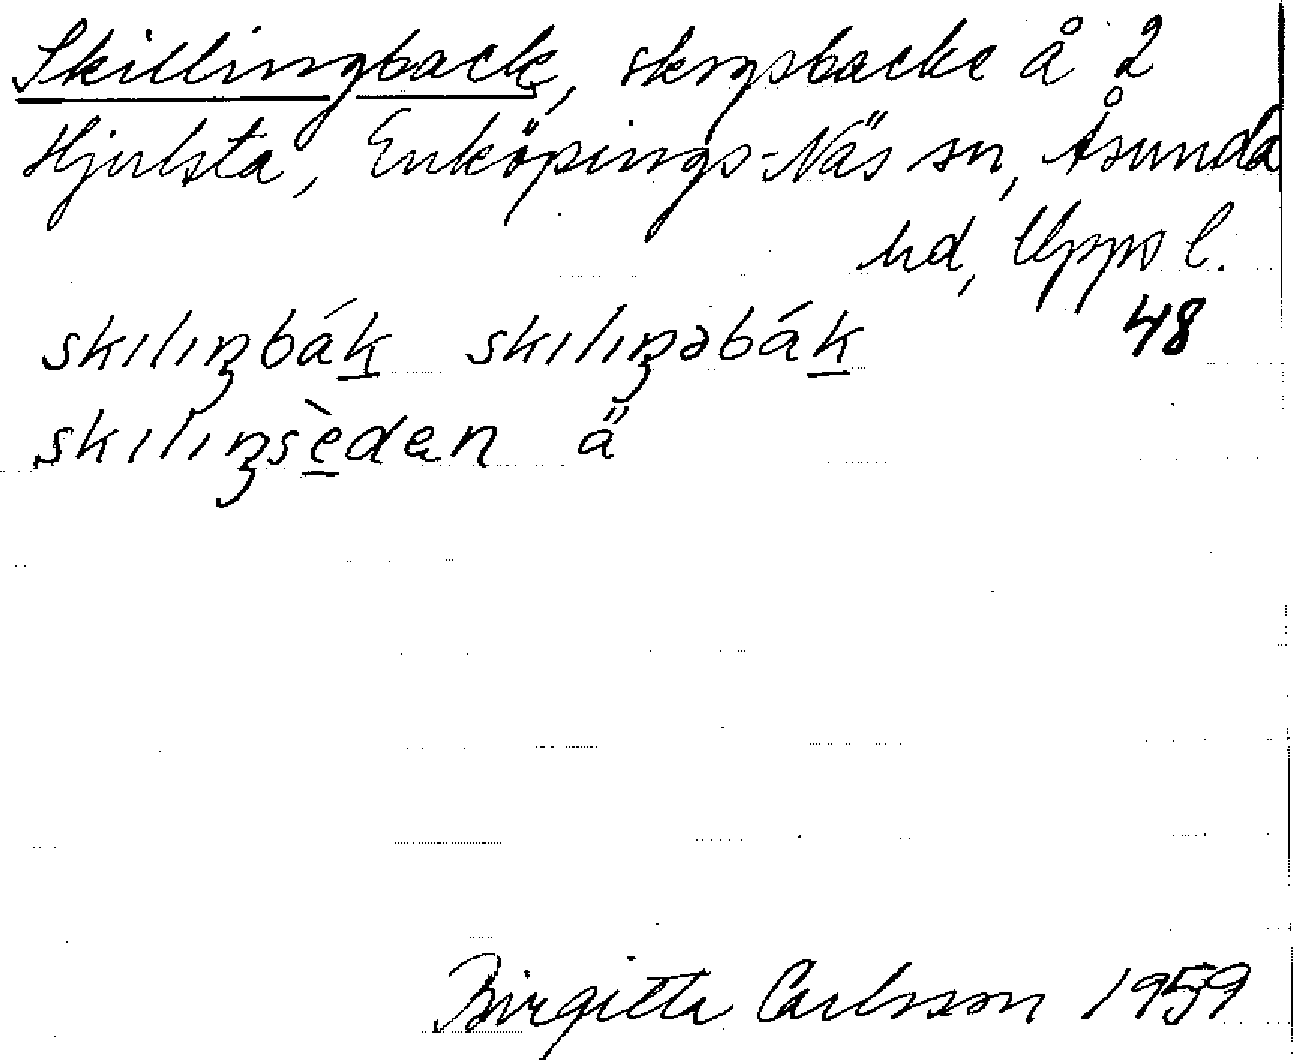 Skillingback, skogsbacke å 2
Hjulsta, Enköpings-Näs sn, Åsunda
hd, Upps l.
48
skılıŋbák̲ skılıŋəbák̲
skılıŋsè̲den ä
Birgitta Carlsson 1959